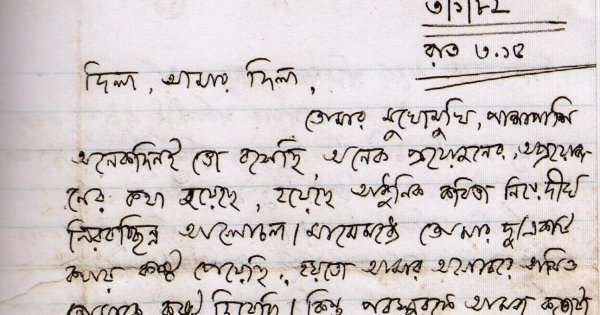 ৩|১|৮২
রাত ৩.১৫
দিলা, আমার দিলা,
তোমার মুখোমুখি, পাশাপাশি
অনেকদিনই তো বসেছি, অনেক প্রয়োজনের, অপ্রয়োজ-
নের কথা হয়েছে, হয়েছে আধুনিক কবিতা নিয়ে দীর্ঘ
নিরবচ্ছিন্ন আলোচনা। মাঝেমধ্যে তোমার দু'একটি
কথায় কষ্ট পেয়েছি, হয়তো আমার অগোচরে আমিও
তোমাকে কষ্ট দিয়েছি। কিন্তু পরস্পরকে আমরা কতটা